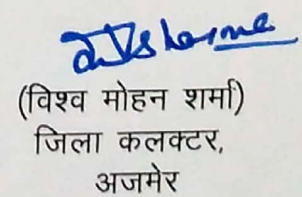 (विश्व मोहन शर्मा)
जिला कलक्टर,
अजमेर